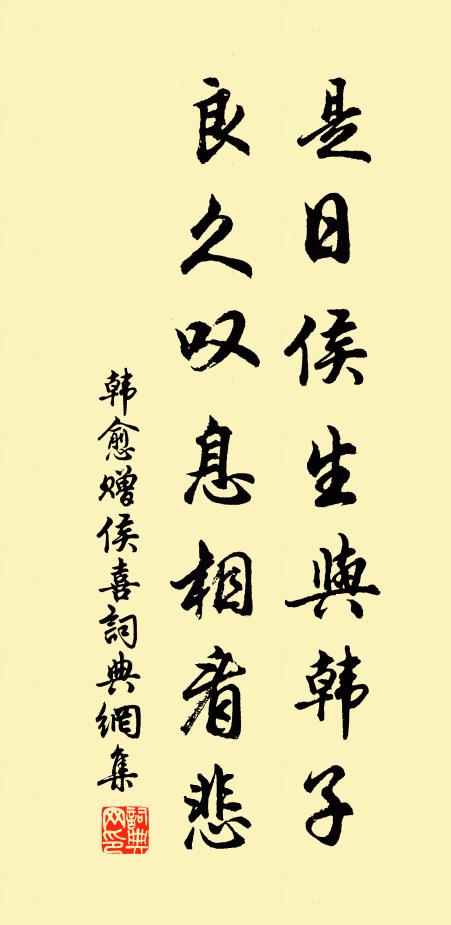 是日侯生與韩子
良久叹息相看悲
韩愈赠侯喜詞典網集
詞典
网印